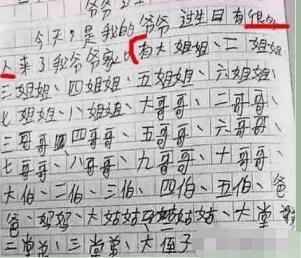 爷爷过生日
今天,是我的爷爷过生日有很多
人来了我爷爷家。有大姐姐、二姐姐
三姐姐、四姐姐、五姐姐、六姐姐、
七姐姐、八姐姐、大哥哥、二哥哥、
三哥哥、四哥哥、五哥哥、六哥哥、
七哥哥、八哥哥、九哥哥、十哥哥、
大伯、二伯、三伯、四伯、五伯、爸
爸、妈妈、大姑姑、姑姑、大堂
二堂弟、三堂弟、大侄子